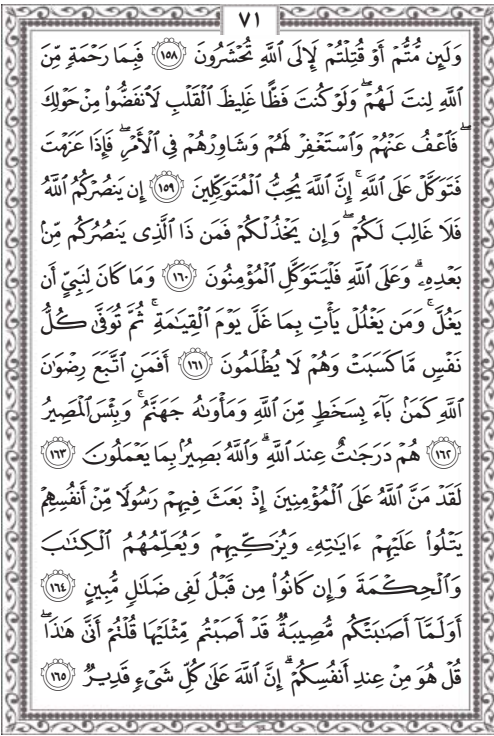 ٧١
وَلَئِن مُّتُّمْ أَوْ قُتِلْتُمْ لَإِلَى ٱللَّهِ تُحْشَرُونَ ١٥٨ فَبِمَا رَحْمَةٍ مِّنَ
ٱللَّهِ لِنتَ لَهُمْ ۖ وَلَوْ كُنتَ فَظًّا غَلِيظَ ٱلْقَلْبِ لَٱنفَضُّوا۟ مِنْ حَوْلِكَ
ۖ فَٱعْفُ عَنْهُمْ وَٱسْتَغْفِرْ لَهُمْ وَشَاوِرْهُمْ فِى ٱلْأَمْرِ ۖ فَإِذَا عَزَمْتَ
فَتَوَكَّلْ عَلَى ٱللَّهِ ۚ إِنَّ ٱللَّهَ يُحِبُّ ٱلْمُتَوَكِّلِينَ ١٥٩ إِن يَنصُرْكُمُ ٱللَّهُ
فَلَا غَالِبَ لَكُمْ ۖ وَإِن يَخْذُلْكُمْ فَمَن ذَا ٱلَّذِى يَنصُرُكُم مِّنۢ
بَعْدِهِۦ ۗ وَعَلَى ٱللَّهِ فَلْيَتَوَكَّلِ ٱلْمُؤْمِنُونَ ١٦٠ وَمَا كَانَ لِنَبِىٍّ أَن
يَغُلَّ ۚ وَمَن يَغْلُلْ يَأْتِ بِمَا غَلَّ يَوْمَ ٱلْقِيَٰمَةِ ۚ ثُمَّ تُوَفَّىٰ كُلُّ
نَفْسٍ مَّا كَسَبَتْ وَهُمْ لَا يُظْلَمُونَ ١٦١ أَفَمَنِ ٱتَّبَعَ رِضْوَٰنَ
ٱللَّهِ كَمَنۢ بَآءَ بِسَخَطٍ مِّنَ ٱللَّهِ وَمَأْوَىٰهُ جَهَنَّمُ ۚ وَبِئْسَ ٱلْمَصِيرُ
١٦٢ هُمْ دَرَجَٰتٌ عِندَ ٱللَّهِ ۗ وَٱللَّهُ بَصِيرٌۢ بِمَا يَعْمَلُونَ ١٦٣
لَقَدْ مَنَّ ٱللَّهُ عَلَى ٱلْمُؤْمِنِينَ إِذْ بَعَثَ فِيهِمْ رَسُولًا مِّنْ أَنفُسِهِمْ
يَتْلُوا۟ عَلَيْهِمْ ءَايَٰتِهِۦ وَيُزَكِّيهِمْ وَيُعَلِّمُهُمُ ٱلْكِتَٰبَ
وَٱلْحِكْمَةَ وَإِن كَانُوا۟ مِن قَبْلُ لَفِى ضَلَٰلٍ مُّبِينٍ ١٦٤
أَوَلَمَّآ أَصَٰبَتْكُم مُّصِيبَةٌ قَدْ أَصَبْتُم مِّثْلَيْهَا قُلْتُمْ أَنَّىٰ هَٰذَا ۖ
قُلْ هُوَ مِنْ عِندِ أَنفُسِكُمْ ۗ إِنَّ ٱللَّهَ عَلَىٰ كُلِّ شَىْءٍ قَدِيرٌ ١٦٥